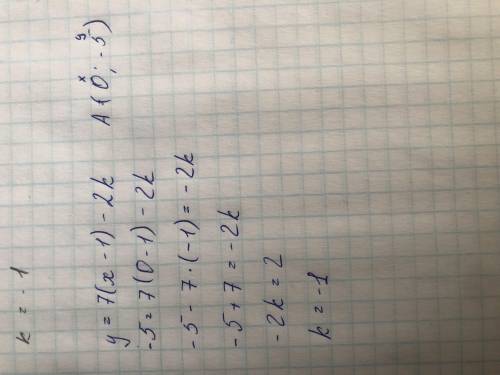 k = -1
y = 7(x - 1) - 2k A (0; -5)
x y
-5 = 7(0 - 1) - 2k
-5 - 7 · (-1) = -2k
-5 + 7 = -2k
-2k = 2
k = -1